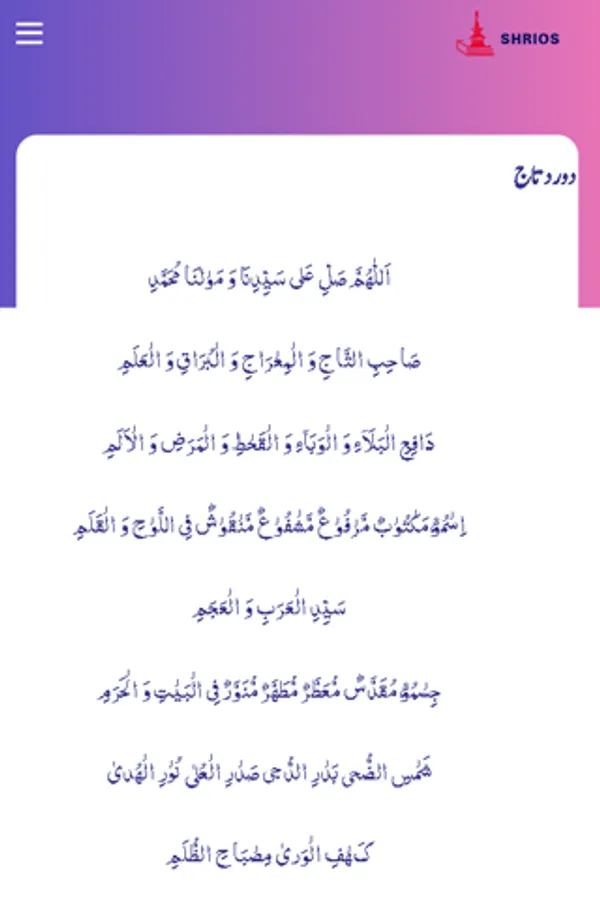 SHRIOS
دورد تاج
اَللّٰهُمَّ صَلِّ عَلٰى سَيِّدِنَا وَ مَوْلٰنَا مُحَمَّدٍ
صَاحِبِ التَّاجِ وَ الْمِعْرَاجِ وَ الْبُرَاقِ وَ الْعَلَمِ
دَافِعِ الْبَلَآءِ وَ الْوَبَآءِ وَ الْقَحْطِ وَ الْمَرَضِ وَ الْاَلَمِ
اِسْمُهٗ مَكْتُوْبٌ مَّرْفُوْعٌ مَّشْفُوْعٌ مَّنْقُوْشٌ فِی اللَّوْحِ وَ الْقَلَمِ
سَيِّدِ الْعَرَبِ وَ الْعَجَمِ
جِسْمُهٗ مُقَدَّسٌ مُّعَطَّرٌ مُّطَهَّرٌ مُّنَوَّرٌ فِی الْبَيْتِ وَ الْحَرَمِ
شَمْسِ الضُّحٰى بَدْرِ الدُّجٰى صَدْرِ الْعُلٰى نُوْرِ الْهُدٰى
كَهْفِ الْوَرٰى مِصْبَاحِ الظُّلَمِ